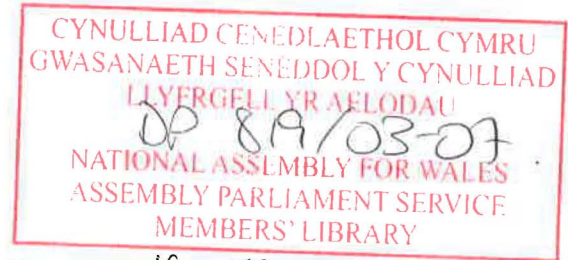 CYNULLIAD CENEDLAETHOL CYMRU
GWASANAETH SENEDDOL Y CYNULLIAD
LLYFRGELL YR AELODAU
DP 819/03-07
NATIONAL ASSEMBLY FOR WALES
ASSEMBLY PARLIAMENT SERVICE
MEMBERS' LIBRARY